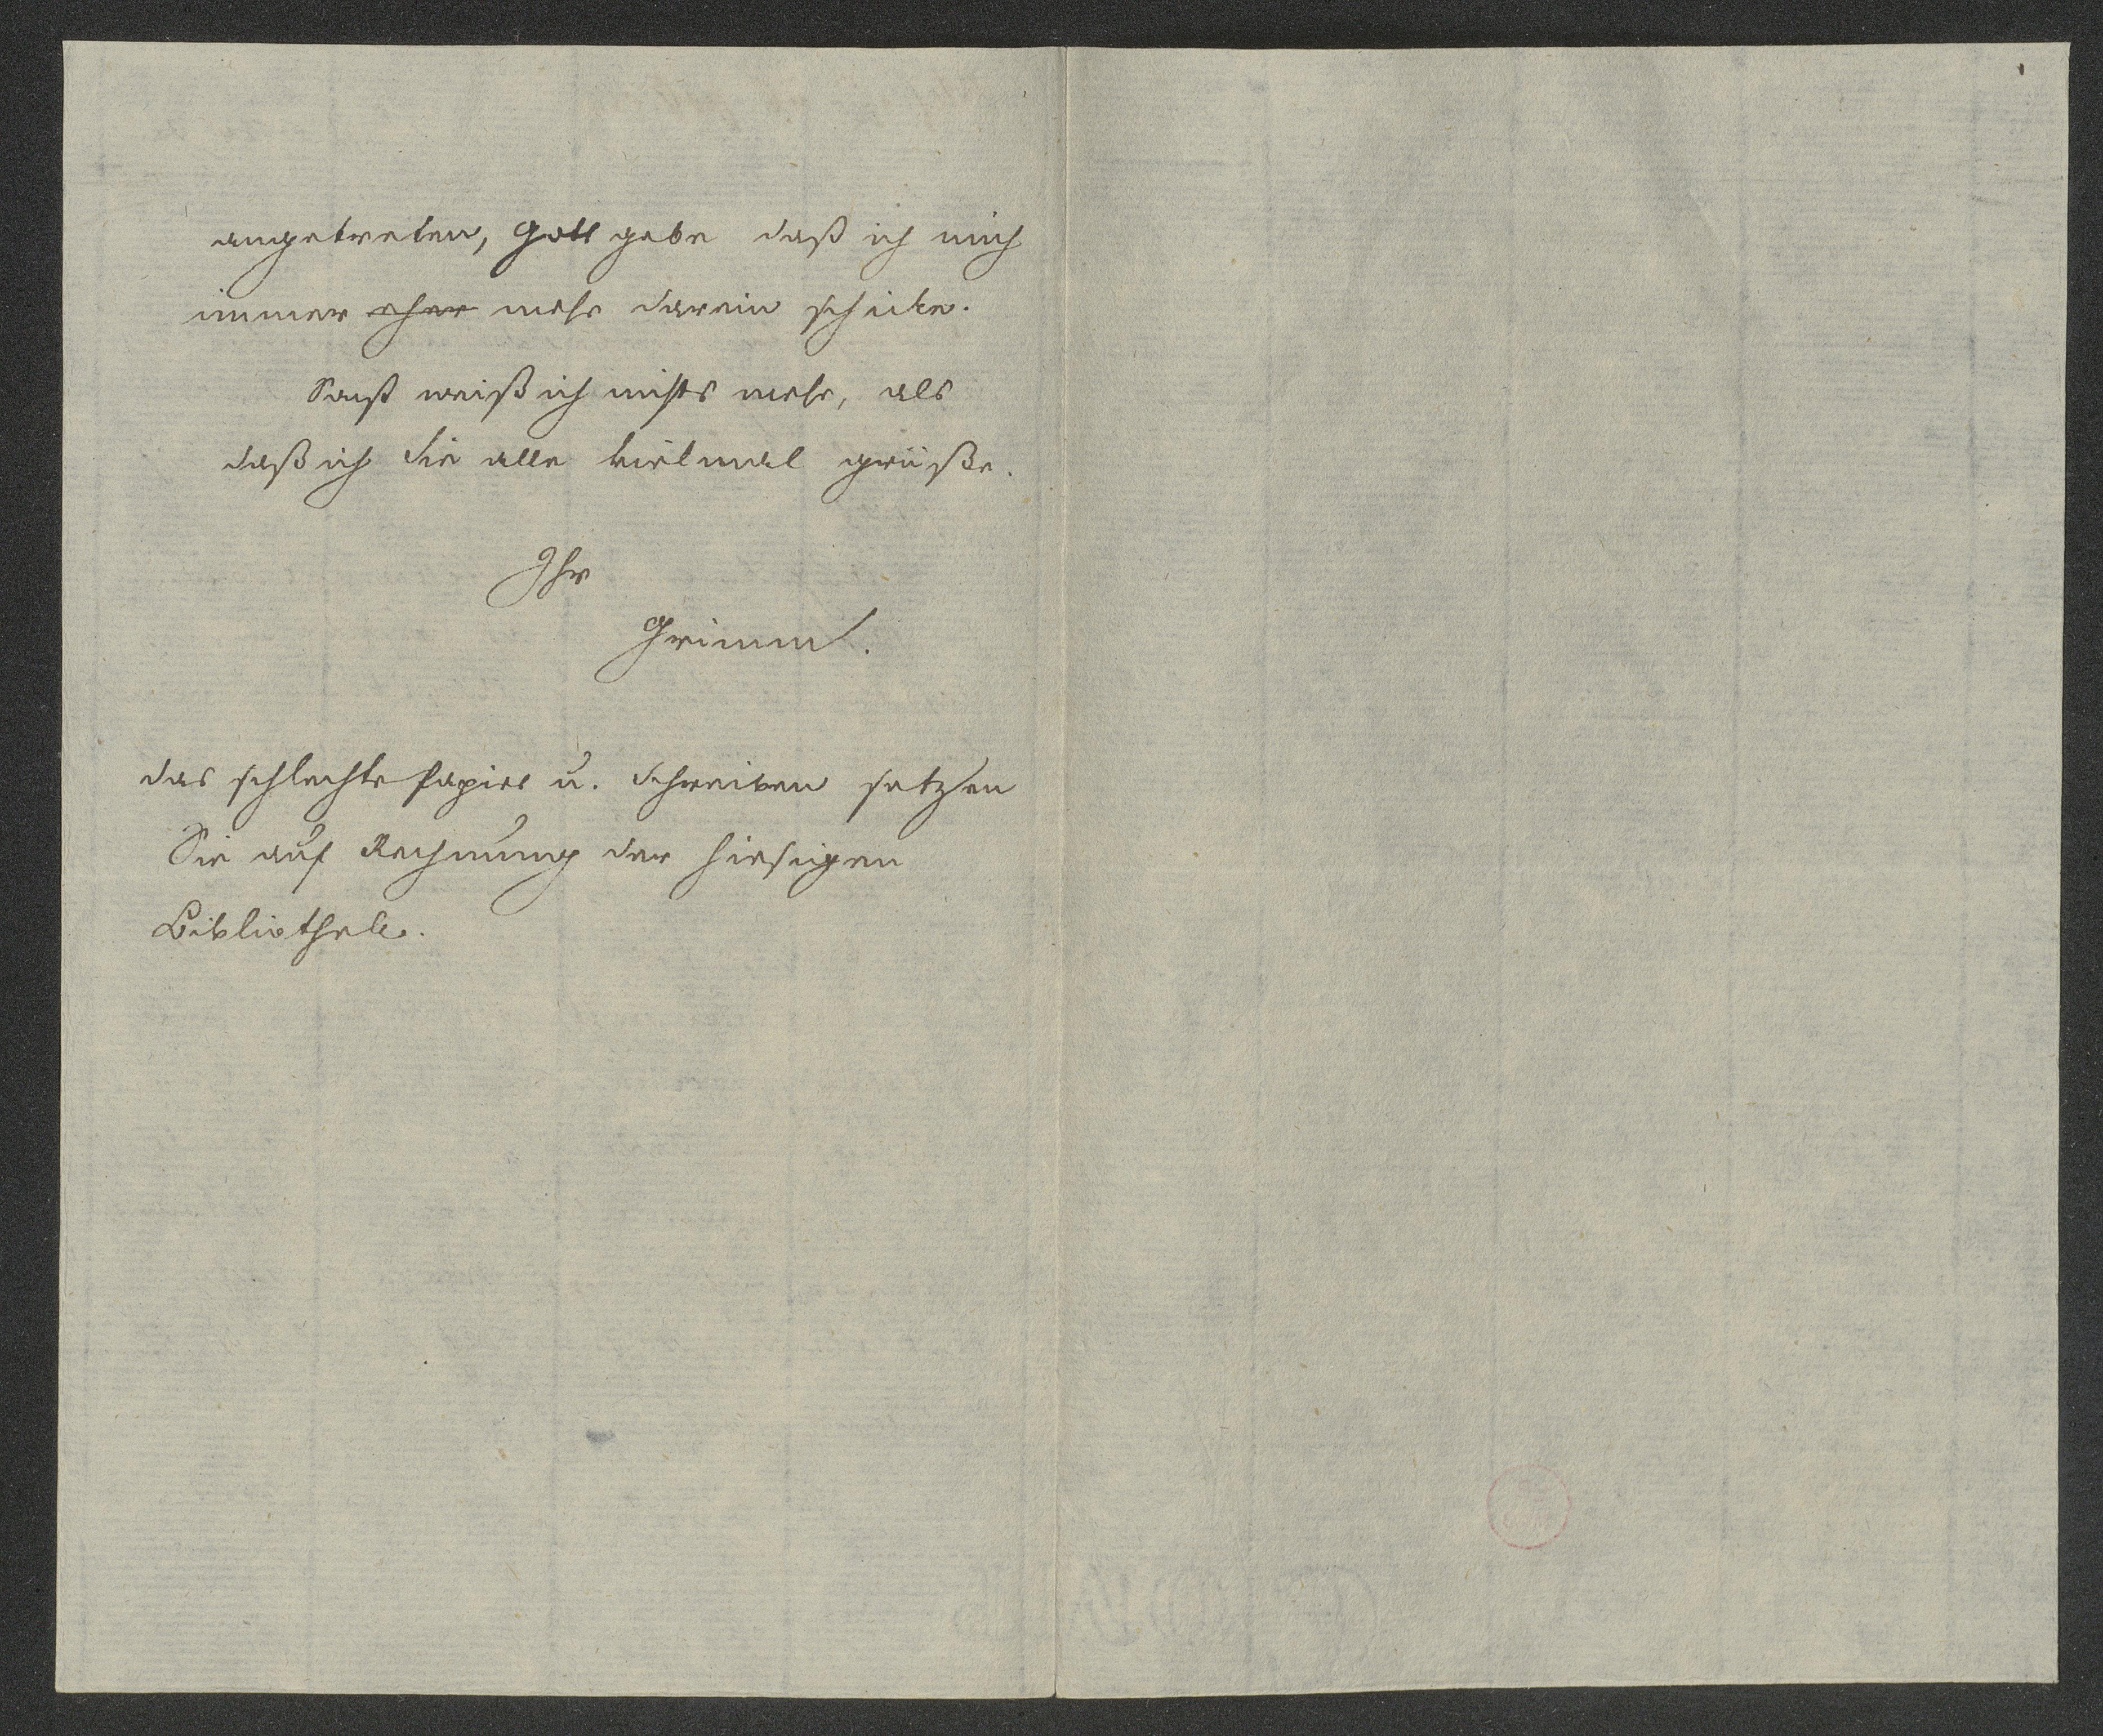 angetreten, Gott gebe daß ich mich
immer eher mehr darein schicke.
Sonst weiß ich nichts mehr, als
daß ich Sie alle vielmal grüße.
Ihr
Grimm.
das schlechte Papier u. Schreiben setzen
Sie auf Rechnung der hiesigen
Bibliothek.